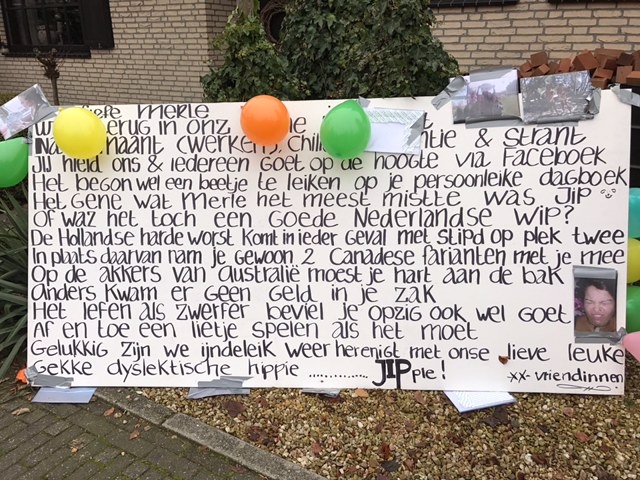 Lieve Merle
terug in onz
naant (werken), Chill ntie & strant
Jij hield ons & iedereen goet op de hoogte via Facebook
Het begon wel een beetje te leiken op je persoonleike dagboek
Het gene wat Merle het meest mistte was Jip
Of waz het toch een goede Nederlandse wip?
De Hollandse harde worst komt in ieder geval met stipd op plek twee
In plaats daarvan nam je gewoon 2 Canadese farianten met je mee
Op de akkers van Australië moest je hart aan de bak
Anders kwam er geen geld in je zak
Het lefen als zwerfer beviel je opzig ook wel goet
Af en toe een lietje spelen als het moet
Gelukkig zijn we ijndeleik weer herenigt met onse lieve leuke
Gekke dyslektische hippie ............ JIPpie!
xx- vriendinnen